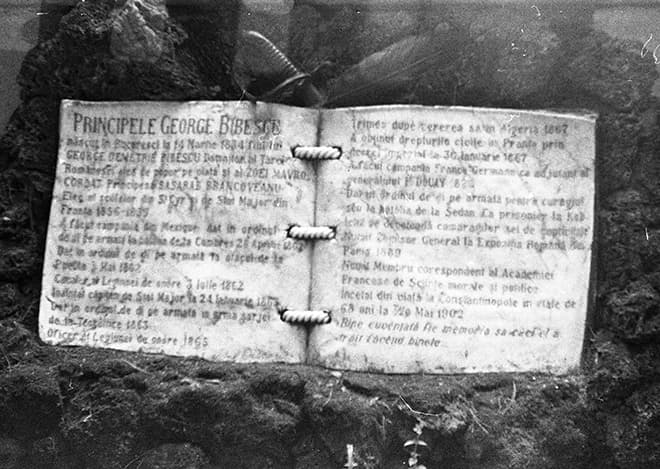 PRINCIPELE GEORGE BIBESCU
născut în Bucuresci la 14 Martie 1834 fiul lui
GEORGE DEMETRIE BIBESCU Domnitor al Țarei
Românesci ales de popor pe viață și al ZOEI MAVRO
CORDAT Principesa BASARAB BRANCOVEANU
Elev al școlelor din St Cyr și de Stat Major din
Franta 1856-1859
A făcut campania din Mexique dat in ordinul
de di pe armata la de la Cumbres 28 Aprile 1862
Dat in ordinul de di pe armata la de
Puebla 5 Mai 1862
Cavaler al Legiunei de onóre 3 Iulie 1862
Inaintat căpitan de Stat Major la 24 Ianuarie 1863
in ordinul de di pe armata in urma
de la 1863
Oficer al Legiunei de onóre 1865
Trimes dupe cererea sa in Algeria 1867
A obținut drepturile civile in Franța prin
Decret Imperial la 30 Ianuarie 1867
A făcut campania Franco Germana ca adjutant al
generalului F. DOUAY
Dat in ordinul de di pe armata pentru curagiul
seu la batălia de la Sedan. Ca prisonier la Kob
lentz pe camaradilor sei de captivitate
Numit Comisar General la Expoziția Română din
Paris 1889
Numit Membru corespondent al Academiei
Francese de Sciințe morale și politice
Incetat din viață la Constantinopole in etate de
68 ani la Mai 1902
Bine cuventată fie memoria sa căci el a
trăit făcend binele